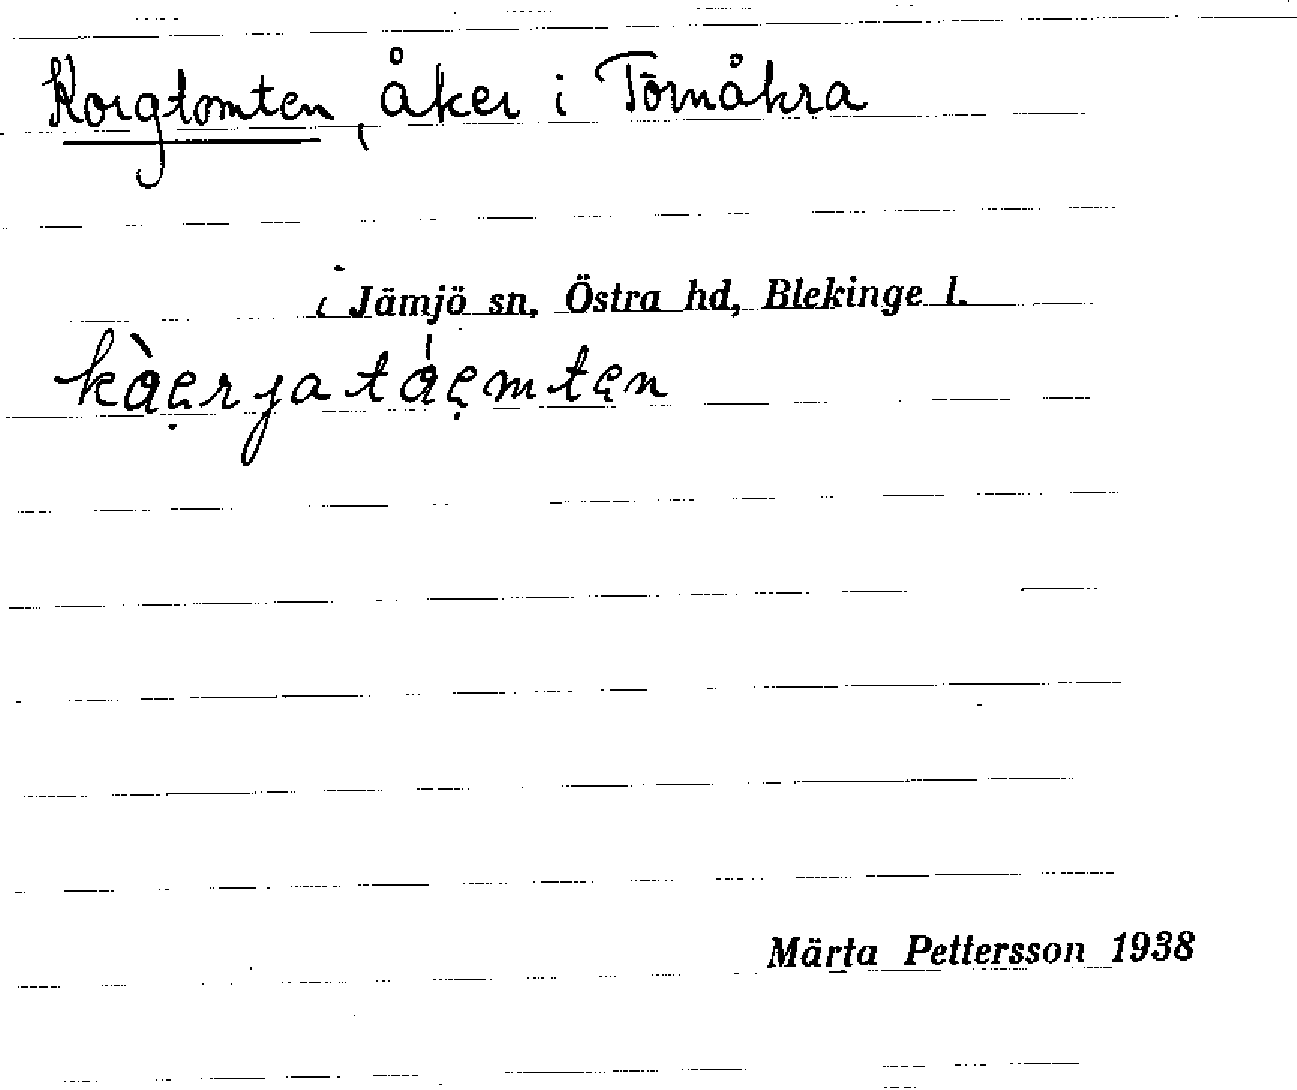 Korgtomten, åker i Törnåkra
i Jämjö sn, Östra hd, Blekinge l.
kàe̤rjatáe̤mten
Märta Pettersson 1938